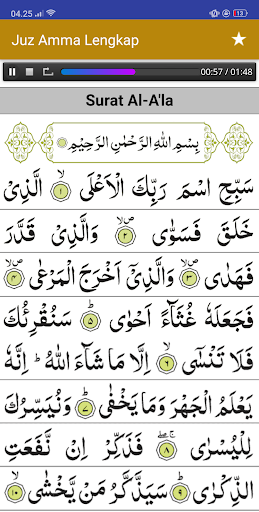 04.25
13
Juz Amma Lengkap
00:57 / 01:48
Surat Al-A'la
بِسْمِ اللّٰهِ الرَّحْمٰنِ الرَّحِيْمِ
سَبِّحِ اسْمَ رَبِّكَ الْاَعْلَى ۙ ١ الَّذِيْ
خَلَقَ فَسَوّٰى ۖ ٢ وَالَّذِيْ قَدَّرَ
فَهَدٰى ۖ ٣ وَالَّذِيْٓ اَخْرَجَ الْمَرْعٰى ۖ ٤
فَجَعَلَهٗ غُثَاۤءً اَحْوٰى ۗ ٥ سَنُقْرِئُكَ
فَلَا تَنْسٰىٓ ۙ ٦ اِلَّا مَا شَاۤءَ اللّٰهُ ۗ اِنَّهٗ
يَعْلَمُ الْجَهْرَ وَمَا يَخْفٰى ۗ ٧ وَنُيَسِّرُكَ
لِلْيُسْرٰى ۖ ٨ فَذَكِّرْ اِنْ نَّفَعَتِ
الذِّكْرٰى ۗ ٩ سَيَذَّكَّرُ مَنْ يَّخْشٰى ۙ ١٠